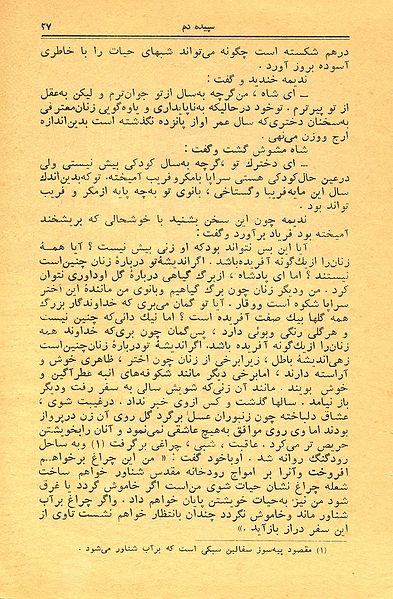 سپیده دم
۲۷
درهم شکسته است چگونه می‌تواند شبهای حیات را با خاطری
آسوده بروز آورد .
ندیمه خندید و گفت :
ـ ای شاه ، من‌گرچه به‌سال ازتو جوان‌ترم و لیکن به‌عقل
از تو پیرترم . توخود درحالیکه به‌ناپایداری و یاوه‌گویی زنان‌معترفی
به‌سخنان دختری‌که سال عمر اواز پانزده نگذشته است بدین‌اندازه
ارج ووزن می‌نهی .
شاه مشوش گشت وگفت :
ـ ای دخترك تو ،گرچه به‌سال کودکی بیش نیستی ولی
درعین حال‌کودکی هستی سراپا بامکروفریب آمیخته. توکه‌بدین‌اندك
سال این مایه‌فریبا وگستاخی ، بانوی تو به‌چه پایه ازمکر و فریب
تواند بود .
ندیمه چون این سخن بشنید با خوشحالی که بریشخند
آمیخته بود فریاد برآورد وگفت :
آیا این بس نتواند بودکه او زنی بیش نیست ؟ آیا همهٔ
زنان‌را ازیك‌گونه آفریده‌باشد . اگراندیشهٔ‌تو دربارهٔ زنان چنین‌است
نیستند ؟ اما ای پادشاه ، ازبرگ گیاهی دربارهٔ گل اوداوری نتوان
کرد . من ودیگر زنان چون برگ گیاهیم وبانوی من مانندهٔ این اختر
سراپا شکوه است ووقار . آیا تو گمان می‌بری که خداوندگار بزرگ
همه گلها بیك صفت آفریده است ؟ اما نیك دانی‌که چنین نیست
و هرگلی رنگی وبوئی دارد ، پس‌گمان چون بری‌که خداوند همه
زنان‌را ازیك‌گونه آفریده باشد. اگراندیشهٔ تودربارهٔ زنان‌چنین‌است
زهی‌اندیشهٔ باطل ، زیرابرخی از زنان چون اختر ، ظاهری خوش و
آراسته دارند ، امابرخی دیگر مانند شکوفه‌های انبه عطرآگین و
خوش بویند . مانند آن زنی‌که شویش سالی به سفر رفت ودیگر
باز نیامد . سالها گذشت و کس ازوی خبر نداد . درغیبت شوی ،
عشاق دلباخته چون زنبوران عسل برگرد گل روی آن زن درپرواز
بودند اما وی روی موافق به‌هیچ عاشقی نمی‌نمود و آنان رابخویشتن
حریص تر می‌کرد . عاقبت ، شبی ، چراغی برگرفت (۱) وبه ساحل
رودگنگ روانه شد . اوباخود گفت : « من این چراغ برخواهـم
افروخت وآنرا بر امواج رودخانه مقدس شناور خواهم ساخت
شعله چراغ نشان حیات شوی من‌است اگر خاموش گردد یا غرق
شود من نیز، به‌حیات خویشتن پایان خواهم داد . واگر چراغ برآب
شناور ماند وخاموش نگردد چندان بانتظار خواهم نشست تاوی از
این سفر دراز بازآید .»
(۱) مقصود پیه‌سوز سفالین سبکی است که برآب شناور می‌شود .